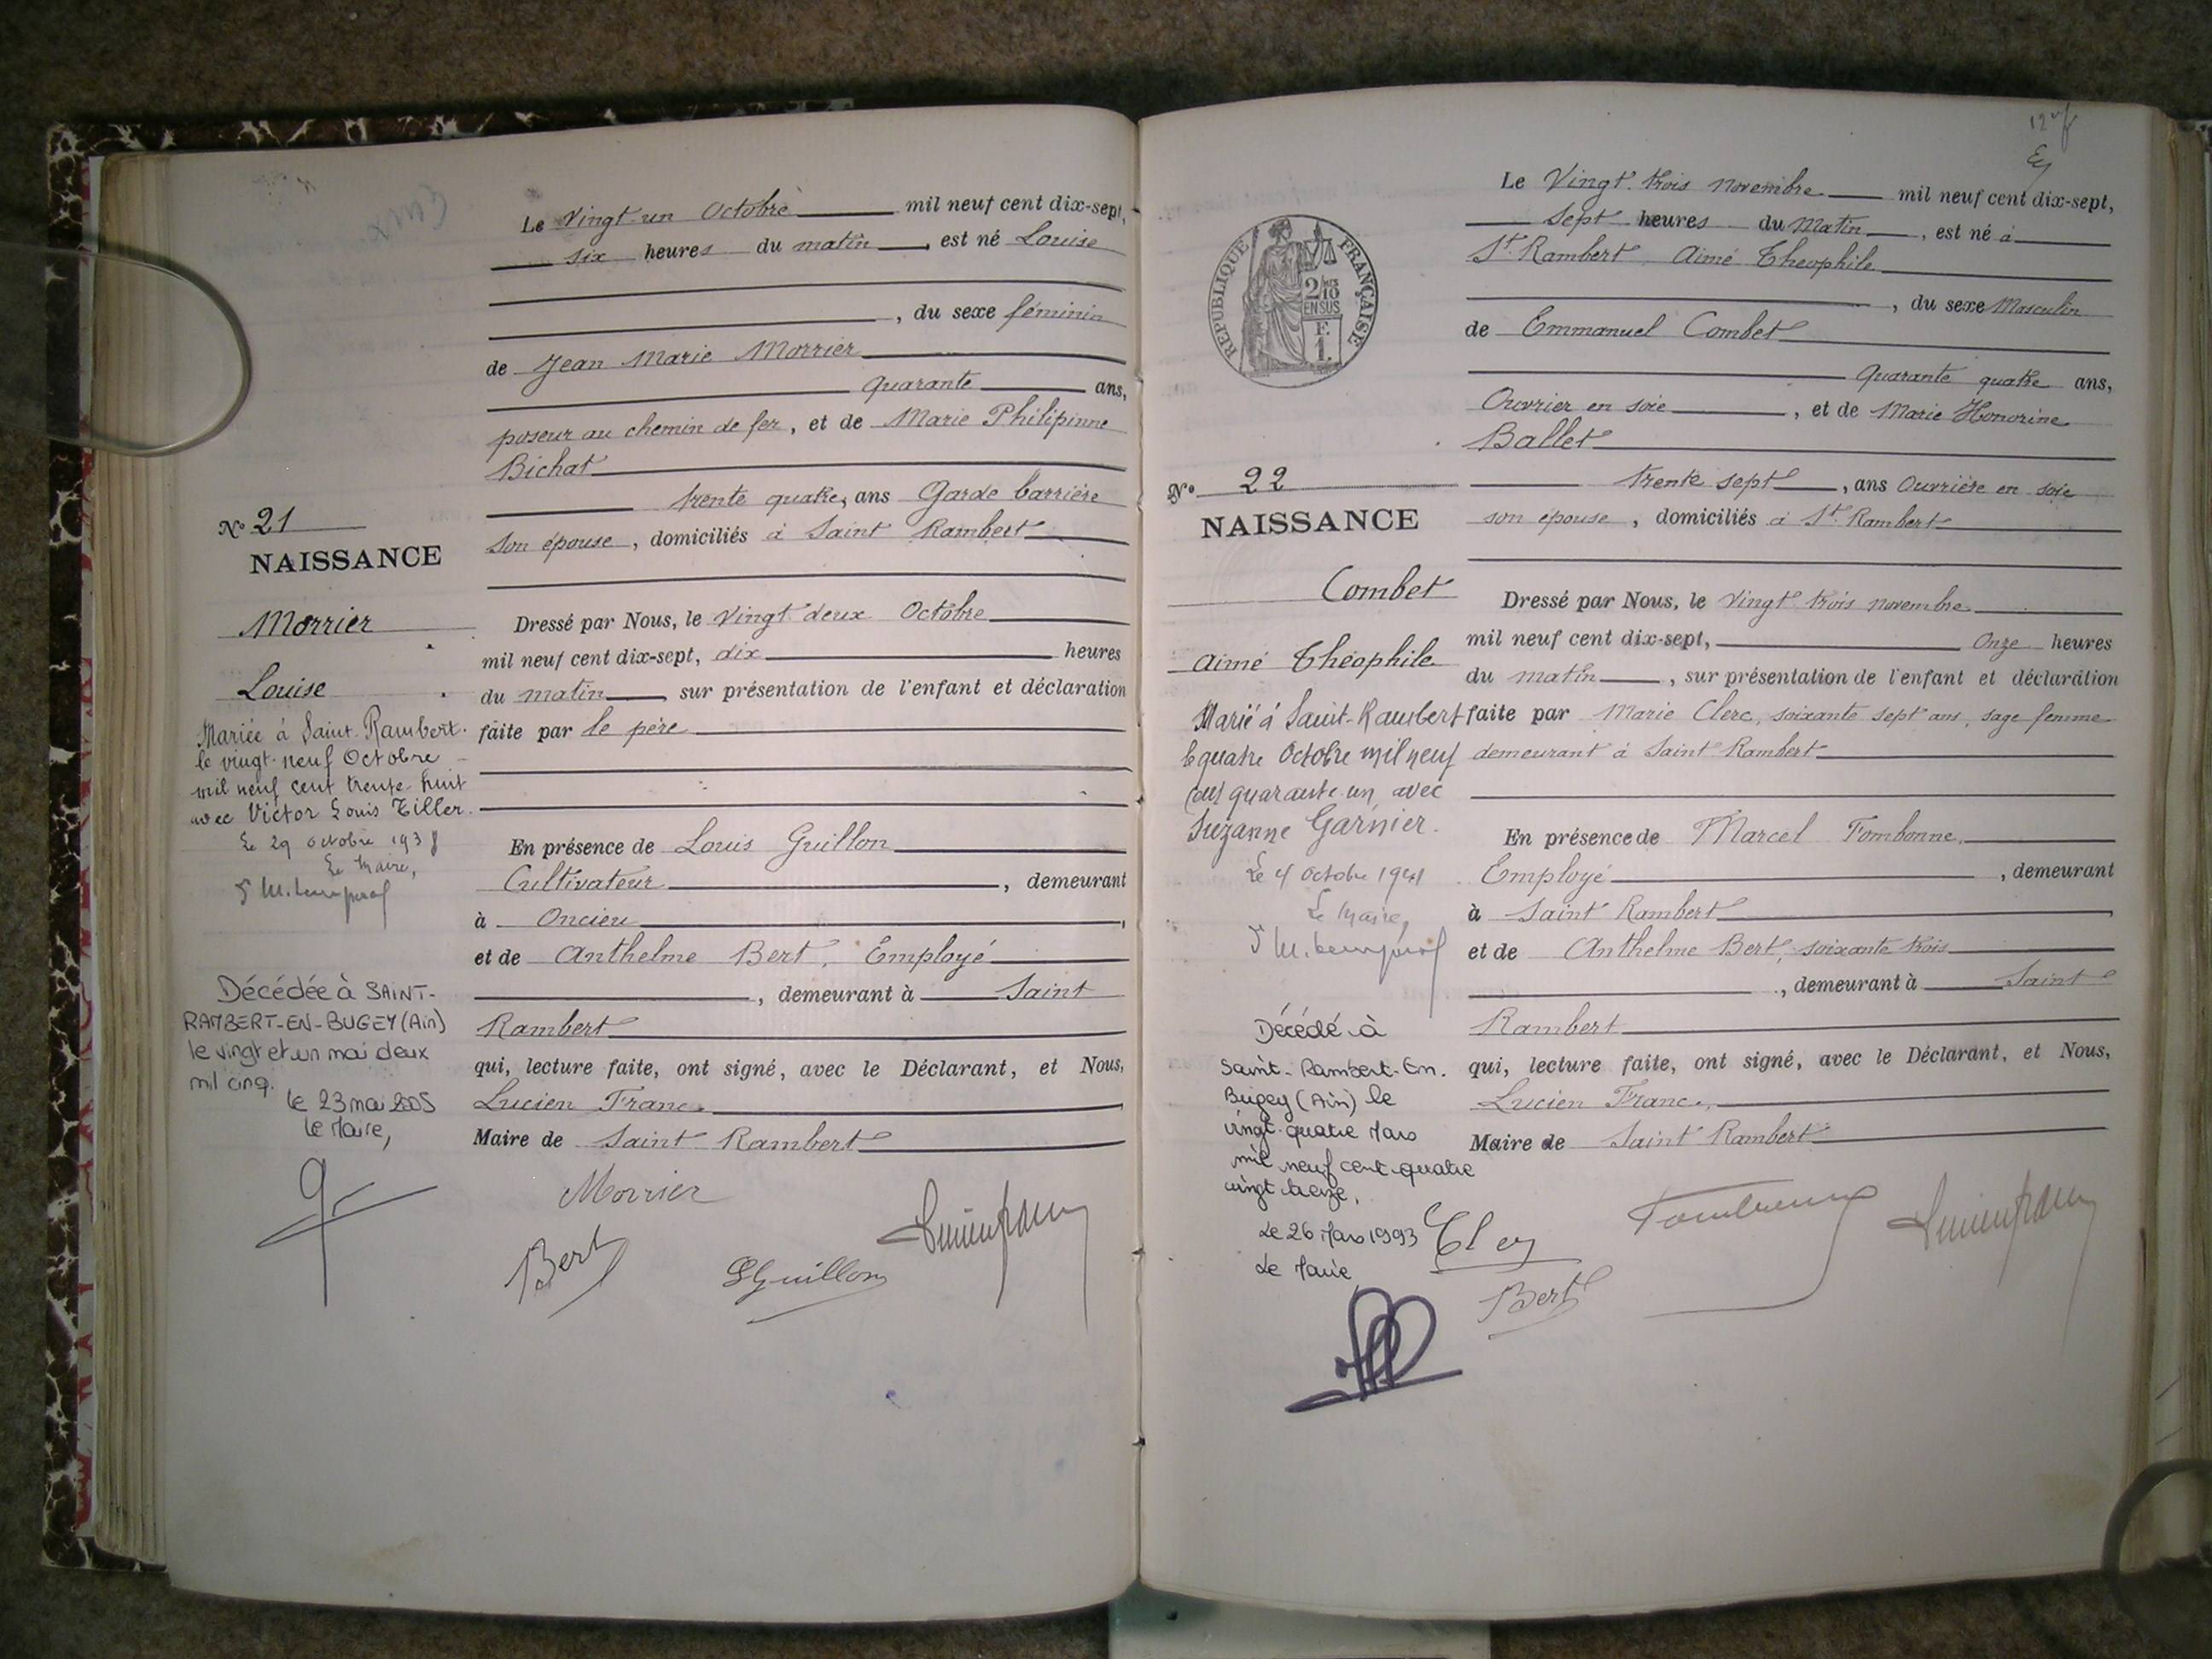 Le Vingt un Octobre mil neuf cent dix-sept,
six heures du matin, est né Louise
, du sexe féminin
de Jean Marie Morrier
quarante ans,
poseur au chemin de fer, et de Marie Philipinne
Bichat
trente quatre, ans Garde barrière
son épouse, domiciliés à Saint Rambert
No 21
NAISSANCE
Morrier
Louise
Mariée à Saint-Rambert.
le vingt-neuf Octobre
mil neuf cent trente-huit
avec Victor Louis Tiller.
Le 29 octobre 1938
Le Maire,
Décédée à SAINT-
RAMBERT-EN-BUGEY (Ain)
le vingt et un mai deux
mil cinq.
le 23 mai 2005
le Maire,
Dressé par Nous, le vingt deux Octobre
mil neuf cent dix-sept, dix heures
du matin, sur présentation de l'enfant et déclaration
faite par le père
En présence de Louis Guillon
Cultivateur, demeurant
à Oncieu,
et de Anthelme Bert, Employé
, demeurant à Saint
Rambert
qui, lecture faite, ont signé, avec le Déclarant, et Nous,
Lucien Franc,
Maire de Saint Rambert
Morrier
Bert
LGuillon
12
Le Vingt trois novembre mil neuf cent dix-sept,
sept heures du Matin, est né à
St Rambert Aimé Théophile
, du sexe Masculin
de Emmanuel Combet
Quarante quatre ans,
Ouvrier en soie, et de Marie Honorine
Ballet
trente sept, ans Ouvrière en soie
son épouse, domiciliés à St Rambert
REPUBLIQUE FRANÇAISE
2/10
EN SUS
F.
1.
No 22
NAISSANCE
Combet
Aimé Théophile
Marié à Saint-Rambert
le quatre Octobre mil neuf
cent quarante-un avec
Suzanne Garnier.
Le 4 octobre 1941
Le Maire,
Décédé à
Saint-Rambert-En.
Bugey (Ain) le
vingt-quatre Mars
mil neuf cent-quatre
vingt treize,
Le 26 Mars 1993
Le Maire
Dressé par Nous, le vingt trois novembre
mil neuf cent dix-sept, Onze heures
du matin, sur présentation de l'enfant et déclaration
faite par Marie Clerc, soixante sept ans, sage femme
demeurant à Saint Rambert
En présence de Marcel Tombonne,
Employé, demeurant
à Saint Rambert
et de Anthelme Bert, soixante trois
, demeurant à Saint
Rambert
qui, lecture faite, ont signé, avec le Déclarant, et Nous,
Lucien Franc,
Maire de Saint Rambert
Bert